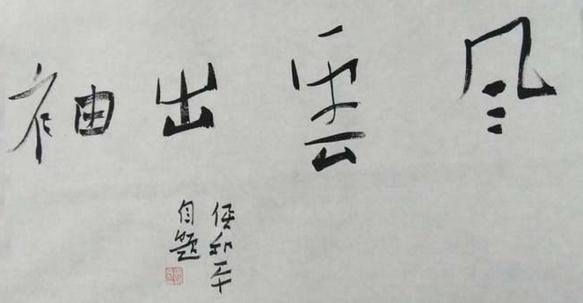 风雲出袖
侯和平
自题